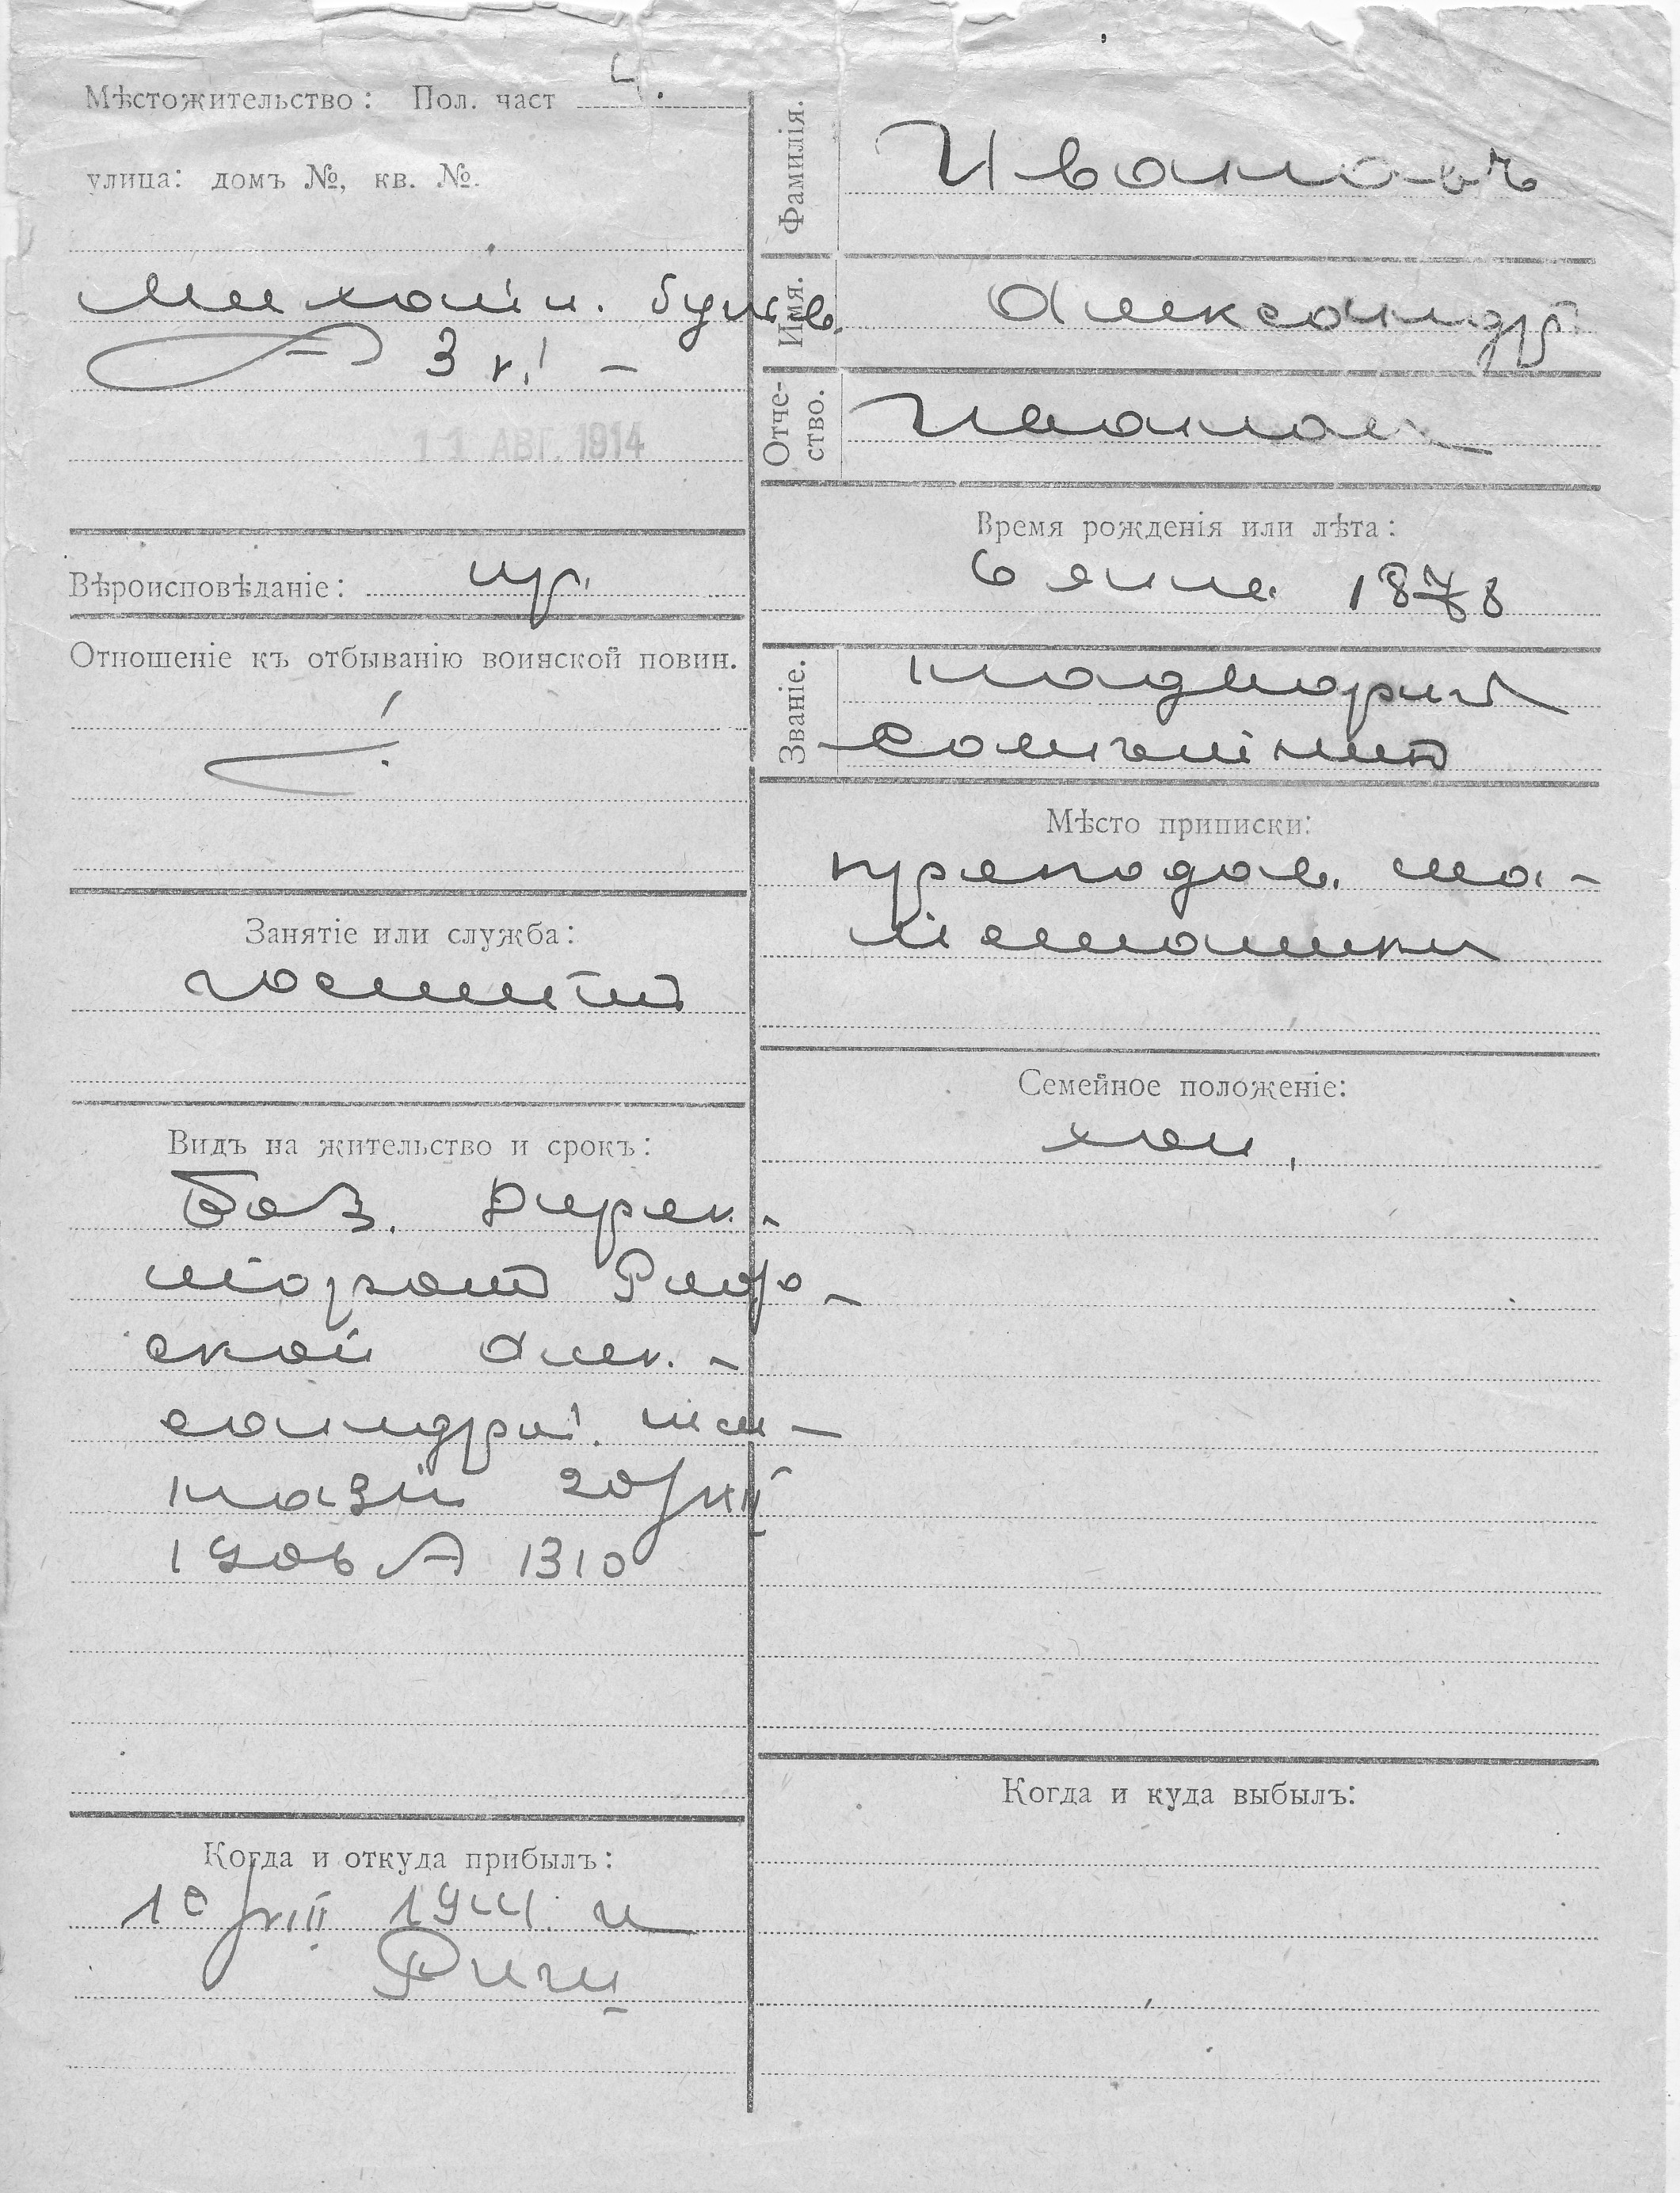 Мѣстожительство: Пол. част 4.
улица: домъ №, кв. №.
Михайл. бульв.
3 к.
11 АВГ. 1914
Вѣроисповѣданіе: пр.
Отношеніе къ отбыванію воинской повин.
Занятіе или служба:
Видъ на жительство и срокъ:
без. дирек-
торомъ Риж-
ской Алек-
сандров. гим-
назіи 20/XII
1906 № 1310
Когда и откуда прибылъ:
10/VIII 1914 из
Риги
Фамилія. Ивановъ
Имя. Александръ
Отчество. Иванов
Время рожденія или лѣта:
6 янв. 1878
Званіе. надворный
совѣтникъ
Мѣсто приписки:
преподав. ма-
тематики
Семейное положеніе:
хол.
Когда и куда выбылъ: